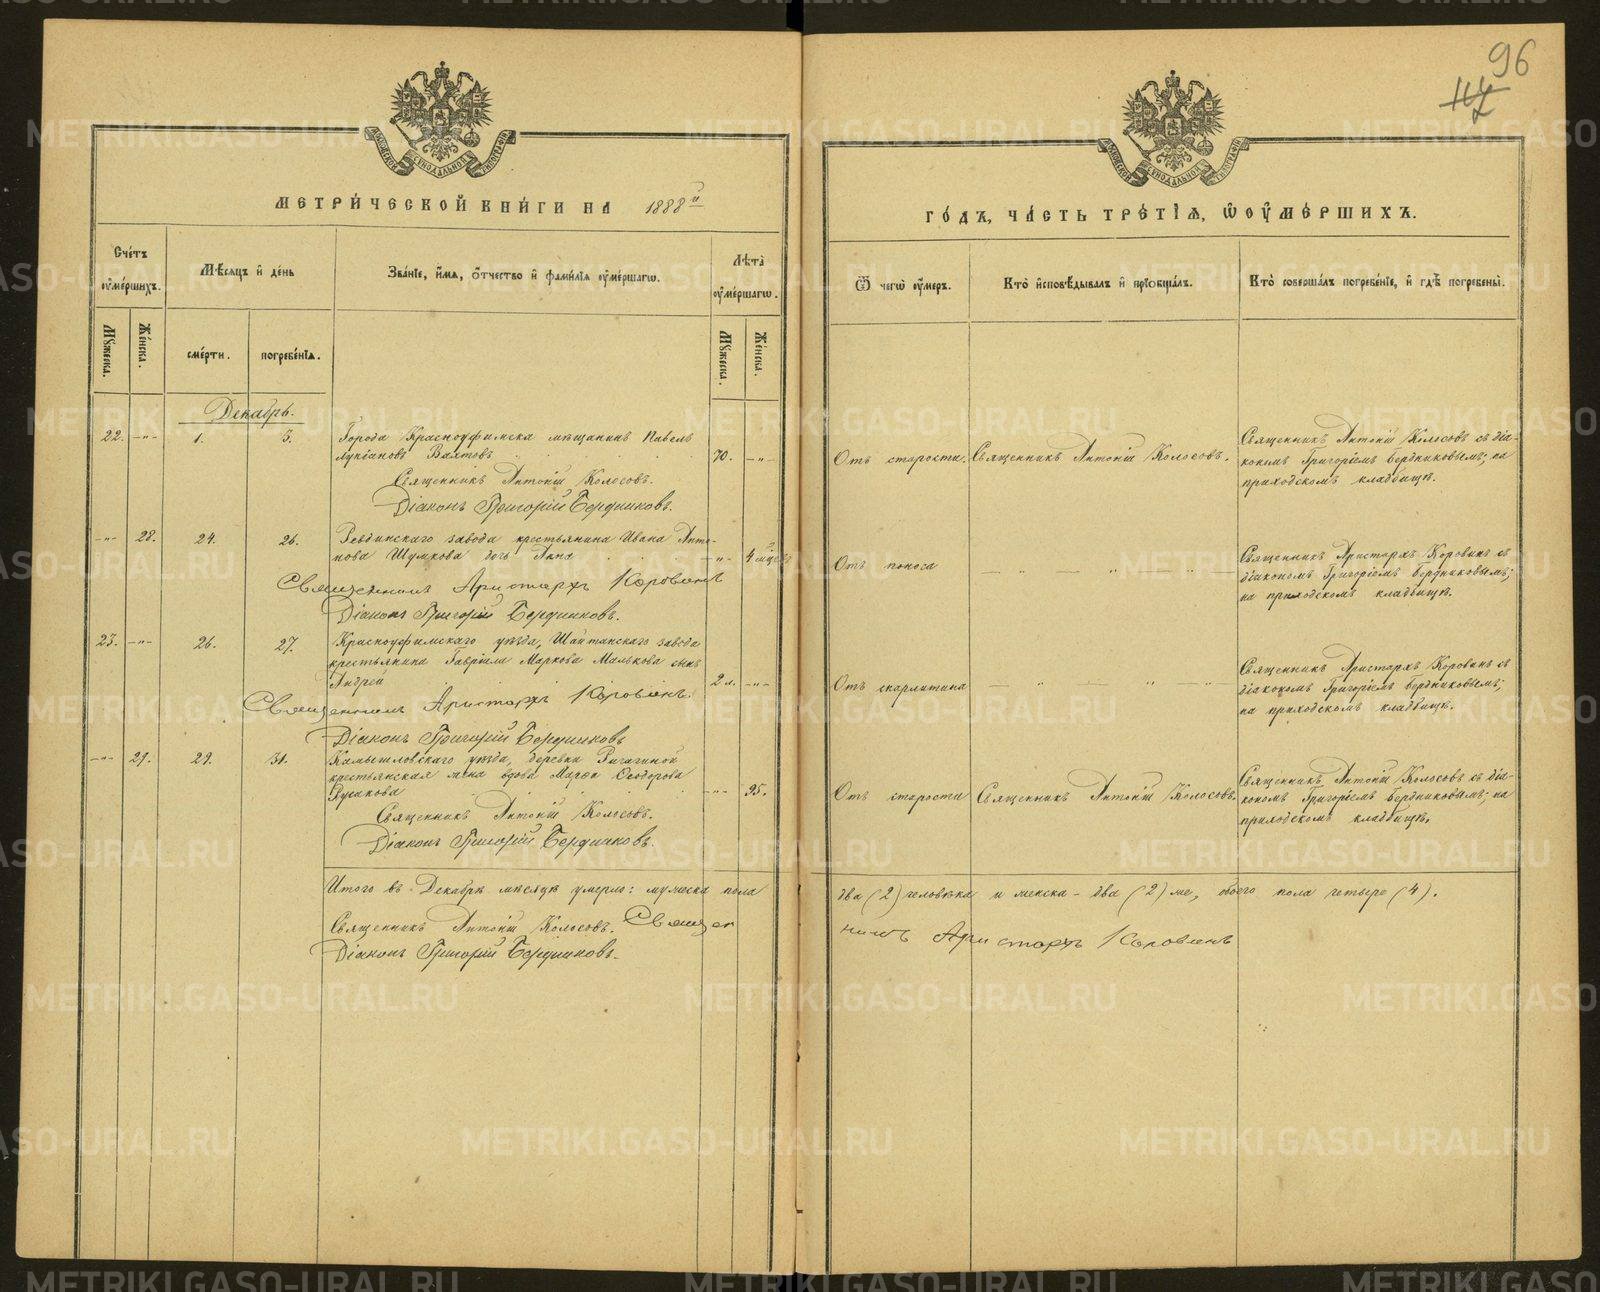 96
МЕТРИЧЕСКОЙ КНИГИ НА 1888й
ГОДЪ, ЧАСТЬ ТРЕТІЯ, Ѡ ОУМЕРШИХЪ.
Счетъ оумершихъ.
Мѣсяцъ и день
Званіе, имя, отчество и фамилія оумершагѡ.
Лѣта оумершагѡ.
Ѿ чегѡ оумеръ.
Кто исповѣдывалъ и пріобщалъ.
Кто совершалъ погребеніе, и гдѣ погребены.
Мужеска.
Женска.
смерти.
погребенія.
Мужеска.
Женска.
Декабрь.
22. -„- 1. 3. Города Красноуфимска мѣщанинъ Павелъ
Лукіановъ Вахтовъ 70. -„-
От старости. Священникъ Антоній Колосовъ.
Священникъ Антоній Колосовъ съ діа-
кономъ Григоріемъ Бердниковымъ; на
приходскомъ кладбищѣ.
Священникъ Антоній Колосовъ.
Діаконъ Григорій Бердниковъ.
-„- 28. 24. 26. Ревдинскаго завода крестьянина Ивана Анто-
нова Шумкова дочь Анна -„- 4 мѣсяц
Отъ поноса
Священникъ Аристархъ Коровинъ съ
діакономъ Григоріемъ Бердниковымъ;
на приходскомъ кладбищѣ.
Священникъ Аристархъ Коровинъ
Діаконъ Григорій Бердниковъ.
23. -„- 26. 27. Красноуфимскаго уѣзда, Шайтанскаго завода
крестьянина Гавріила Маркова Малькова сынъ
Андрей 2 л. -„-
Отъ скарлитина
Священникъ Аристархъ Коровинъ съ
діакономъ Григоріемъ Бердниковымъ;
на приходскомъ кладбищѣ.
Священникъ Аристархъ Коровинъ.
Діаконъ Григорій Бердниковъ
-„- 29. 29. 31. Камышловскаго уѣзда, деревни
крестьянская жена вдова Марѳа Ѳеодорова
Русакова -„- 95.
Отъ старости Священникъ Антоній Колосовъ.
Священникъ Антоній Колосовъ съ діа-
кономъ Григоріемъ Бердниковымъ; на
приходскомъ кладбищѣ.
Священникъ Антоній Колосовъ.
Діаконъ Григорій Бердниковъ.
Итого въ Декабрѣ мѣсяцѣ умерло: мужеска пола два (2) человѣка и женска - два (2) же, обоего пола четыре (4).
Священникъ Антоній Колосовъ. Священникъ Аристархъ Коровинъ
Діаконъ Григорій Бердниковъ.
METRIKI.GASO-URAL.RU